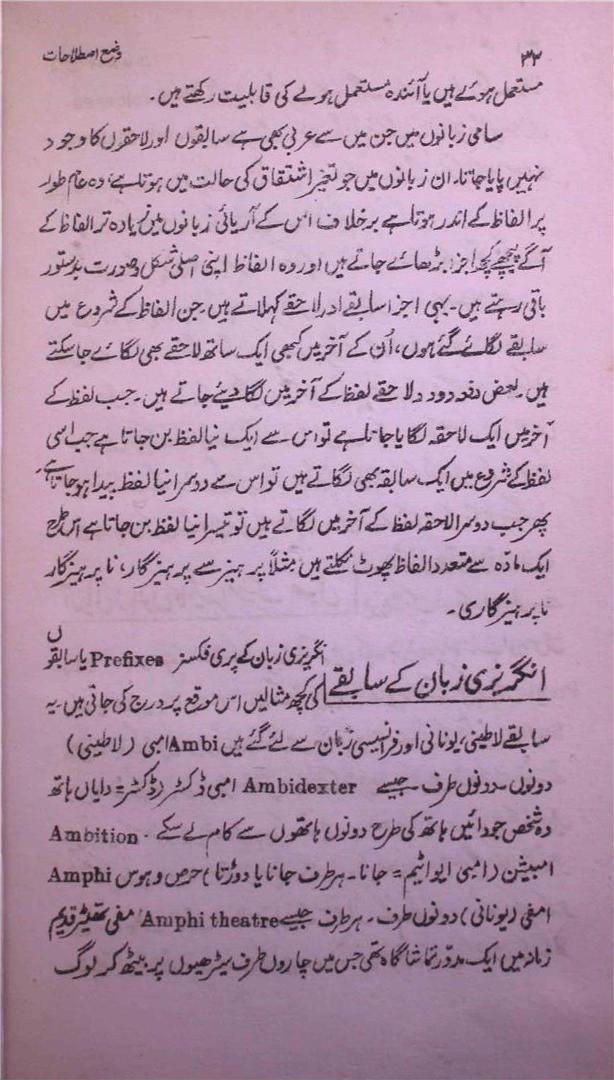 ۳۲ وضع اصطلاحات
مستعمل ہوئے ہیں یا آئندہ مستعمل ہونے کی قابلیت رکھتے ہیں۔
سامی زبانوں میں جن میں سے عربی بھی ہے سابقوں اور لاحقوں کا وجود
نہیں پایا جاتا۔ ان زبانوں میں جو تغیر اشتقاق کی حالت میں ہوتا ہے، وہ عام طور
پر الفاظ کے اندر ہوتا ہے برخلاف اس کے آریائی زبانوں میں زیادہ تر الفاظ کے
آگے پیچھے کچھ اجزا بڑھائے جاتے ہیں اور وہ الفاظ اپنی اصلی شکل و صورت بدستور
باقی رہتے ہیں۔ یہی اجزا سابقے اور لاحقے کہلاتے ہیں۔ جن الفاظ کے شروع میں
سابقے لگائے گئے ہوں، اُن کے آخر میں کبھی ایک ساتھ لاحقے بھی لگائے جا سکتے
ہیں۔ بعض دفعہ دو دو لاحقے لفظ کے آخر میں لگا دیئے جاتے ہیں۔ جب لفظ کے
آخر میں ایک لاحقہ لگایا جاتا ہے تو اس سے ایک نیا لفظ بن جاتا ہے جب اسی
لفظ کے شروع میں ایک سابقہ بھی لگاتے ہیں تو اس سے دوسرا نیا لفظ پیدا ہو جاتا ہے،
پھر جب دوسرا لاحقہ لفظ کے آخر میں لگاتے ہیں تو تیسرا نیا لفظ بن جاتا ہے اس طرح
ایک مادّہ سے متعدد الفاظ پھوٹ نکلتے ہیں مثلاً پرہیز سے پرہیزگار، ناپرہیزگار
ناپرہیزگاری۔
انگریزی زبان کے سابقے
انگریزی زبان کے پری فکسز Prefixes یا سابقوں
کی کچھ مثالیں اس موقع پر درج کی جاتی ہیں۔ یہ
سابقے لاطینی، یونانی اور فرانسیسی زبان سے لئے گئے ہیں Ambi امبی (لاطینی)
دونوں۔ دونوں طرف۔ جیسے Ambidexter امبی ڈکسٹر (ڈکسٹر = دایاں ہاتھ
وہ شخص جو دائیں ہاتھ کی طرح دونوں ہاتھوں سے کام لے سکے۔ Ambition
امبیشن (امبی ایوایٹیم = جانا۔ ہر طرف جانا یا دوڑنا) حرص و ہوس Amphi
امفی (یونانی) دونوں طرف۔ ہر طرف جیسے Amphi theatre امفی تھیٹر قدیم
زمانہ میں ایک مدوّر تماشا گاہ تھی جس میں چاروں طرف سیڑھیوں پر بیٹھ کر لوگ